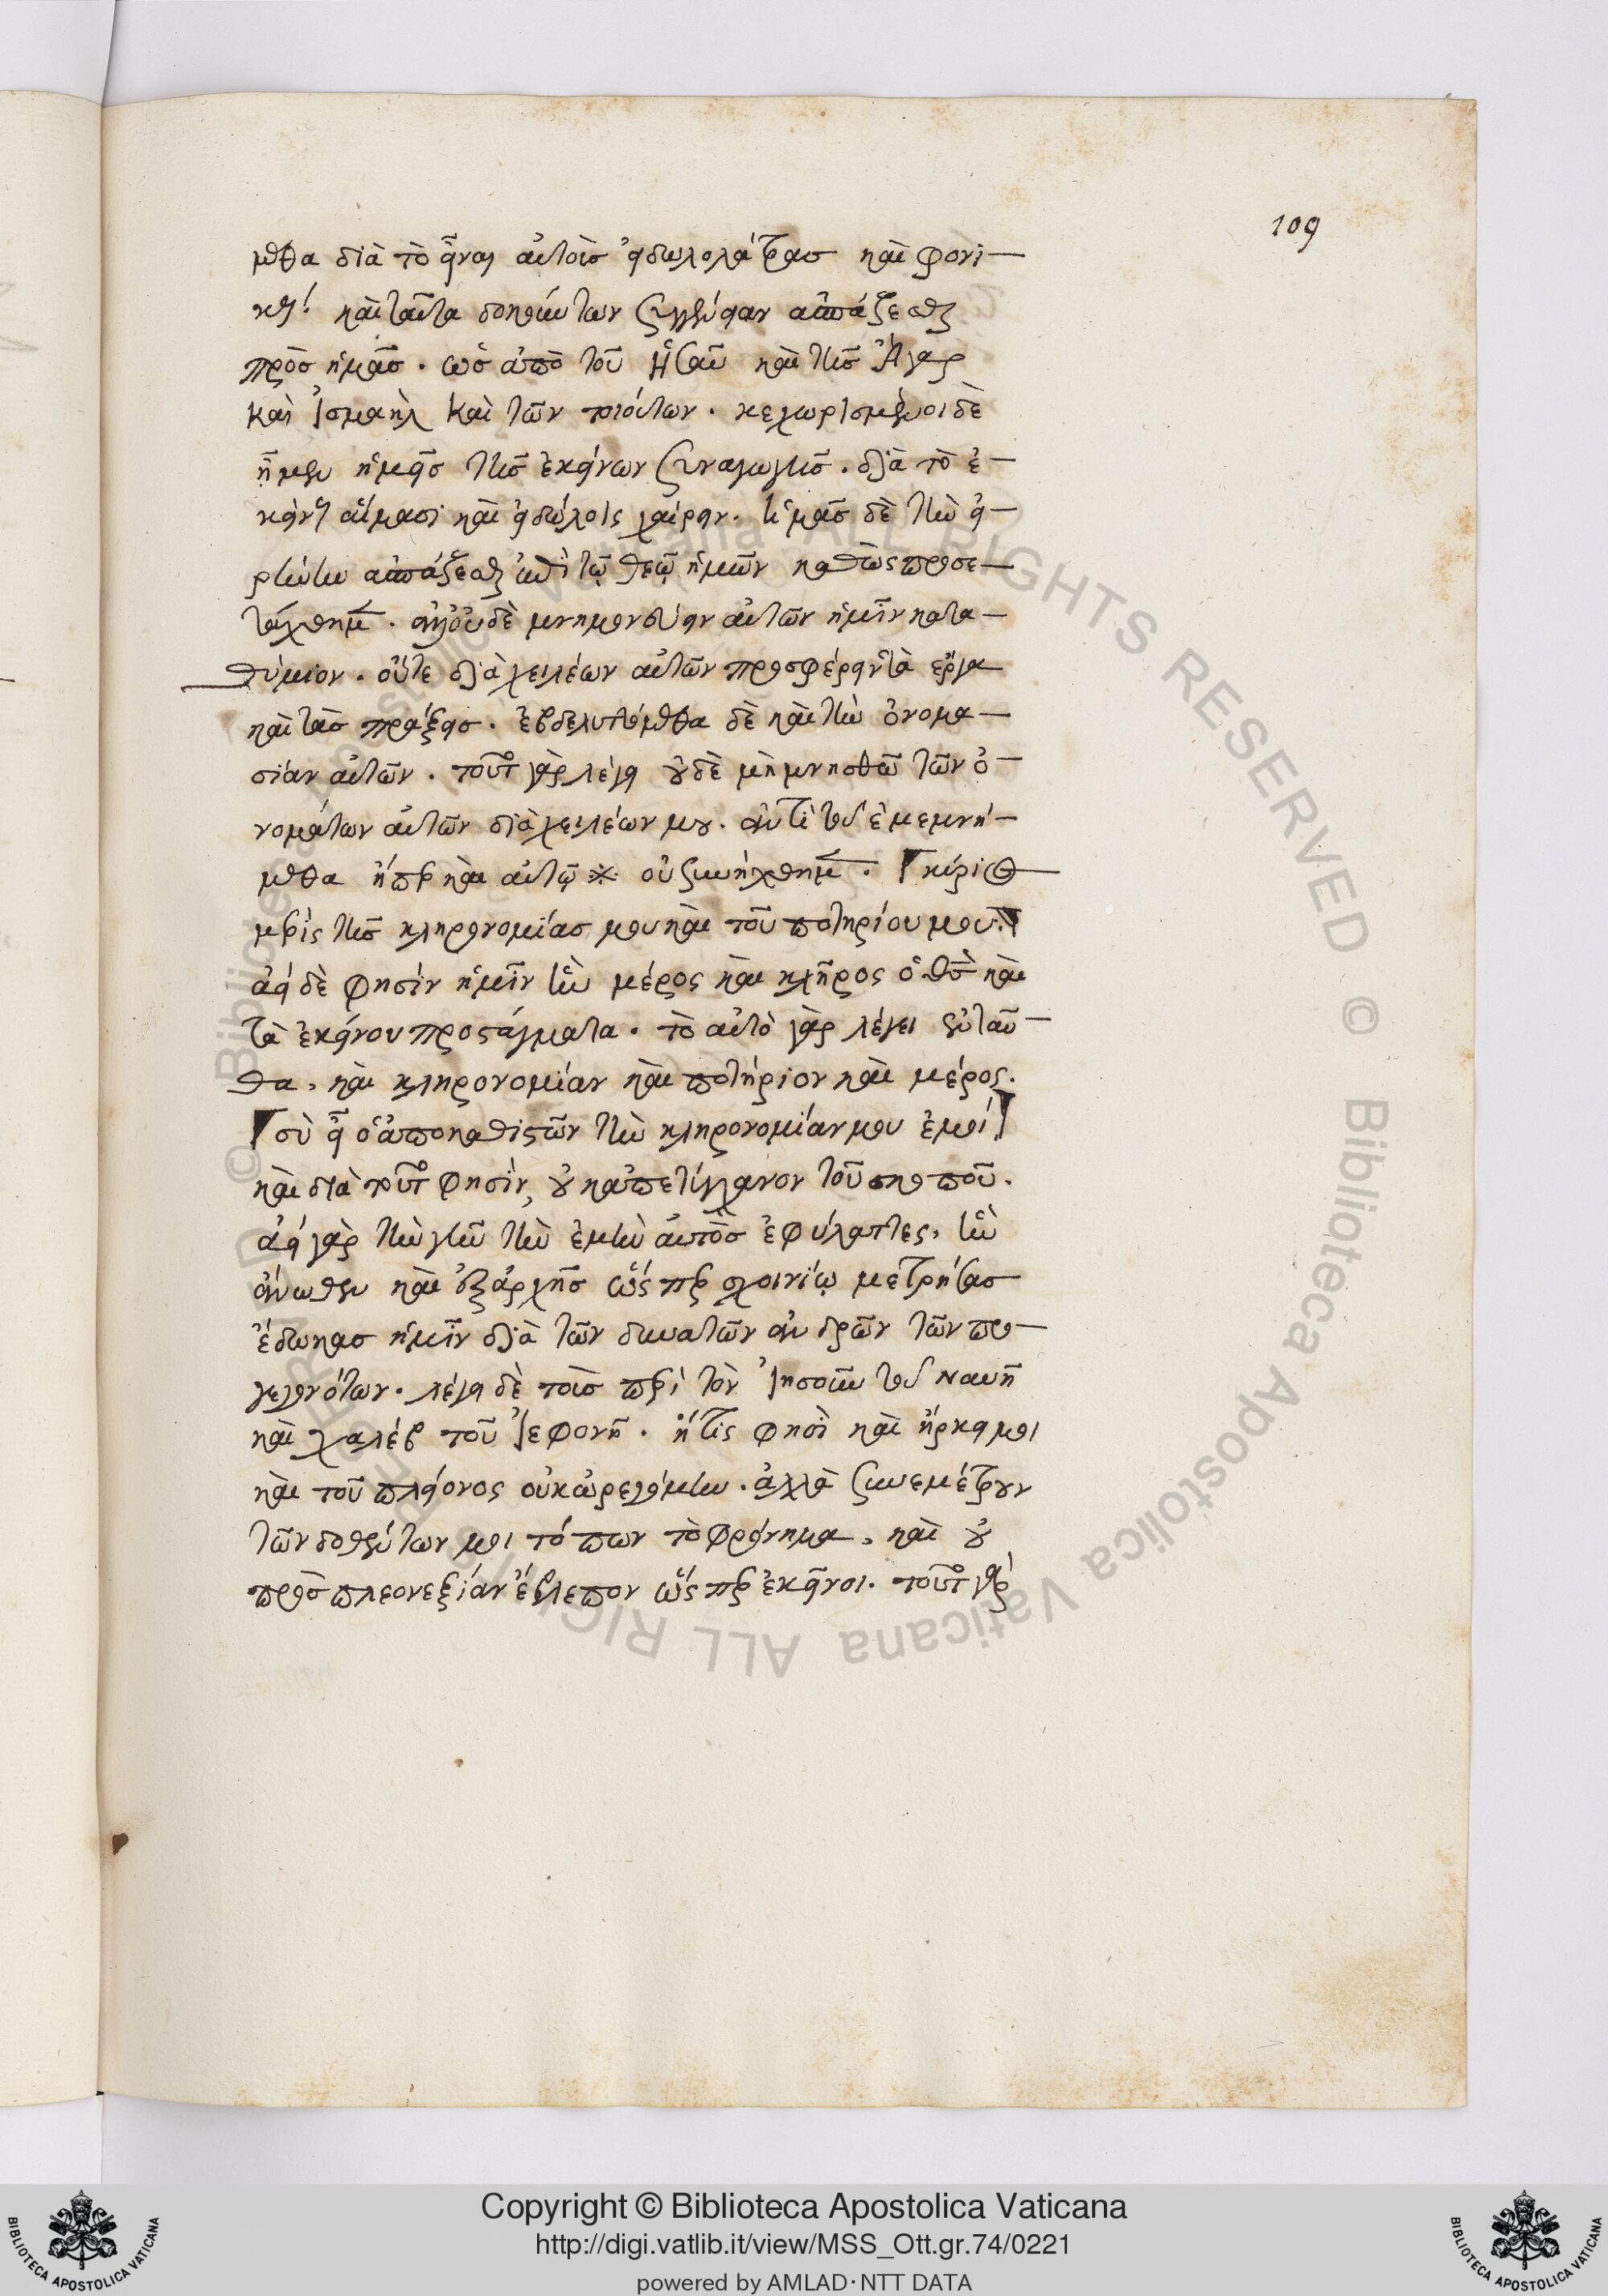 109
μεθα διὰ τὸ εἶναι αὐτοὺς εἰδωλολάτρας καὶ φονι-
κούς· καὶ ταῦτα δοκούντων συγγένειαν ἀσπάζεσθαι
πρὸς ἡμᾶς. ὡς ἀπὸ τοῦ Ἠσαῦ καὶ τῆς Ἄγαρ
καὶ Ἰσμαὴλ καὶ τῶν τοιούτων. κεχωρισμένοι δὲ
ἦμεν ἡμεῖς τῆς ἐκείνων συναγωγῆς. διὰ τὸ ἐ-
κείνους αἵμασι καὶ εἰδώλοις χαίρειν. ἡμᾶς δὲ τὴν εἰ-
ρήνην ἀσπάζεσθαι ἐπὶ τῷ θεῷ ἡμῶν καθὼς προσε-
τάχθημεν. ἀλλ' οὐδὲ μνημονεύειν αὐτῶν ἡμῖν κατα-
θύμιον. οὔτε διὰ χειλέων αὐτῶν προσφέρειν τὰ ἔργα
καὶ τὰς πράξεις. ἐβδελυττόμεθα δὲ καὶ τὴν ὀνομα-
σίαν αὐτῶν. τοῦτο γὰρ λέγει οὐδὲ μὴ μνησθῶ τῶν ὀ-
νομάτων αὐτῶν διὰ χειλέων μου. ἀντὶ τοῦ ἐμεμνή-
μεθα ἤπερ καὶ αὐτῷ ※ οὐ συνήχθημεν. κύριος
μερὶς τῆς κληρονομίας μου καὶ τοῦ ποτηρίου μου·
ἀεὶ δὲ φησὶν ἡμῖν ἦν μέρος καὶ κλῆρος ὁ θεὸς καὶ
τὰ ἐκείνου προστάγματα. τὸ αὐτὸ γὰρ λέγει ἐνταῦ-
θα, καὶ κληρονομίαν καὶ ποτήριον καὶ μέρος.
σὺ εἶ ὁ ἀποκαθιστῶν τὴν κληρονομίαν μου ἐμοί
καὶ διὰ τοῦτο φησὶν, οὐκ ἀπετύγχανον τοῦ σκοποῦ.
ἀεὶ γὰρ τὴν γῆν τὴν ἐμὴν αὐτὸς ἐφύλαττες, ἣν
ἄνωθεν καὶ ἐξ ἀρχῆς ὥσπερ σχοινίῳ μετρήσας
ἔδωκας ἡμῖν διὰ τῶν δυνατῶν ἀνδρῶν τῶν προ-
γεγονότων. λέγει δὲ τοῖς περὶ τὸν Ἰησοῦν τοῦ Ναυῆ
καὶ χαλέβ τοῦ Ἰεφονῆ. ἥτις φησὶ καὶ ἤρκει μοι
καὶ τοῦ πλείονος οὐκ ὠρεγόμην. ἀλλὰ συνεμέτρουν
τῶν δοθέντων μοι τόπων τὸ φρόνημα, καὶ οὐ
πρὸς πλεονεξίαν ἔβλεπον ὥσπερ ἐκεῖνοι. τοῦτο γὰρ
© Biblioteca Apostolica Vaticana ALL RIGHTS RESERVED
Copyright © Biblioteca Apostolica Vaticana
http://digi.vatlib.it/view/MSS_Ott.gr.74/0221
powered by AMLAD·NTT DATA
BIBLIOTECA APOSTOLICA VATICANA
BIBLIOTECA APOSTOLICA VATICANA